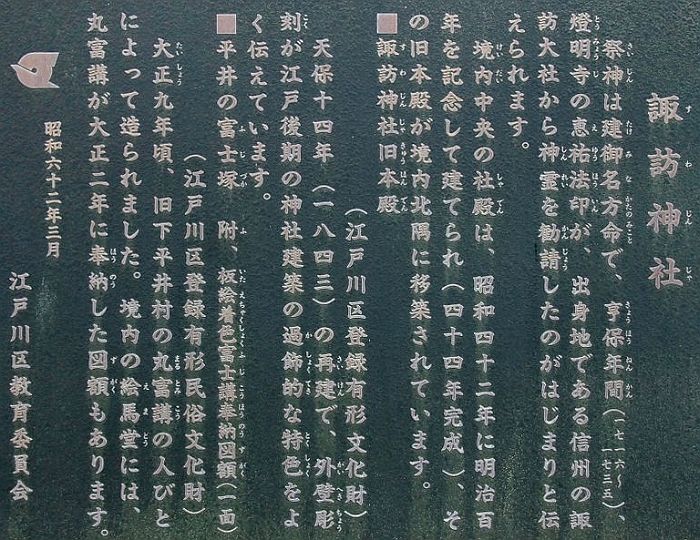 諏訪神社
祭神は建御名方命で、享保年間(一七一六〜一七三五)、
燈明寺の恵祐法印が、出身地である信州の諏
訪大社から神霊を勧請したのがはじまりと伝
えられます。
境内中央の社殿は、昭和四十二年に明治百
年を記念して建てられ(四十四年完成)、そ
の旧本殿が境内北隅に移築されています。
■諏訪神社旧本殿
(江戸川区登録有形文化財)
天保十四年(一八四三)の再建で、外壁彫
刻が江戸後期の神社建築の過飾的な特色をよ
く伝えています。
■平井の富士塚 附、板絵着色富士講奉納図額(一面)
(江戸川区登録有形民俗文化財)
大正九年頃、旧下平井村の丸富講の人びと
によって造られました。境内の絵馬堂には、
丸富講が大正二年に奉納した図額もあります。
昭和六十二年三月
江戸川区教育委員会